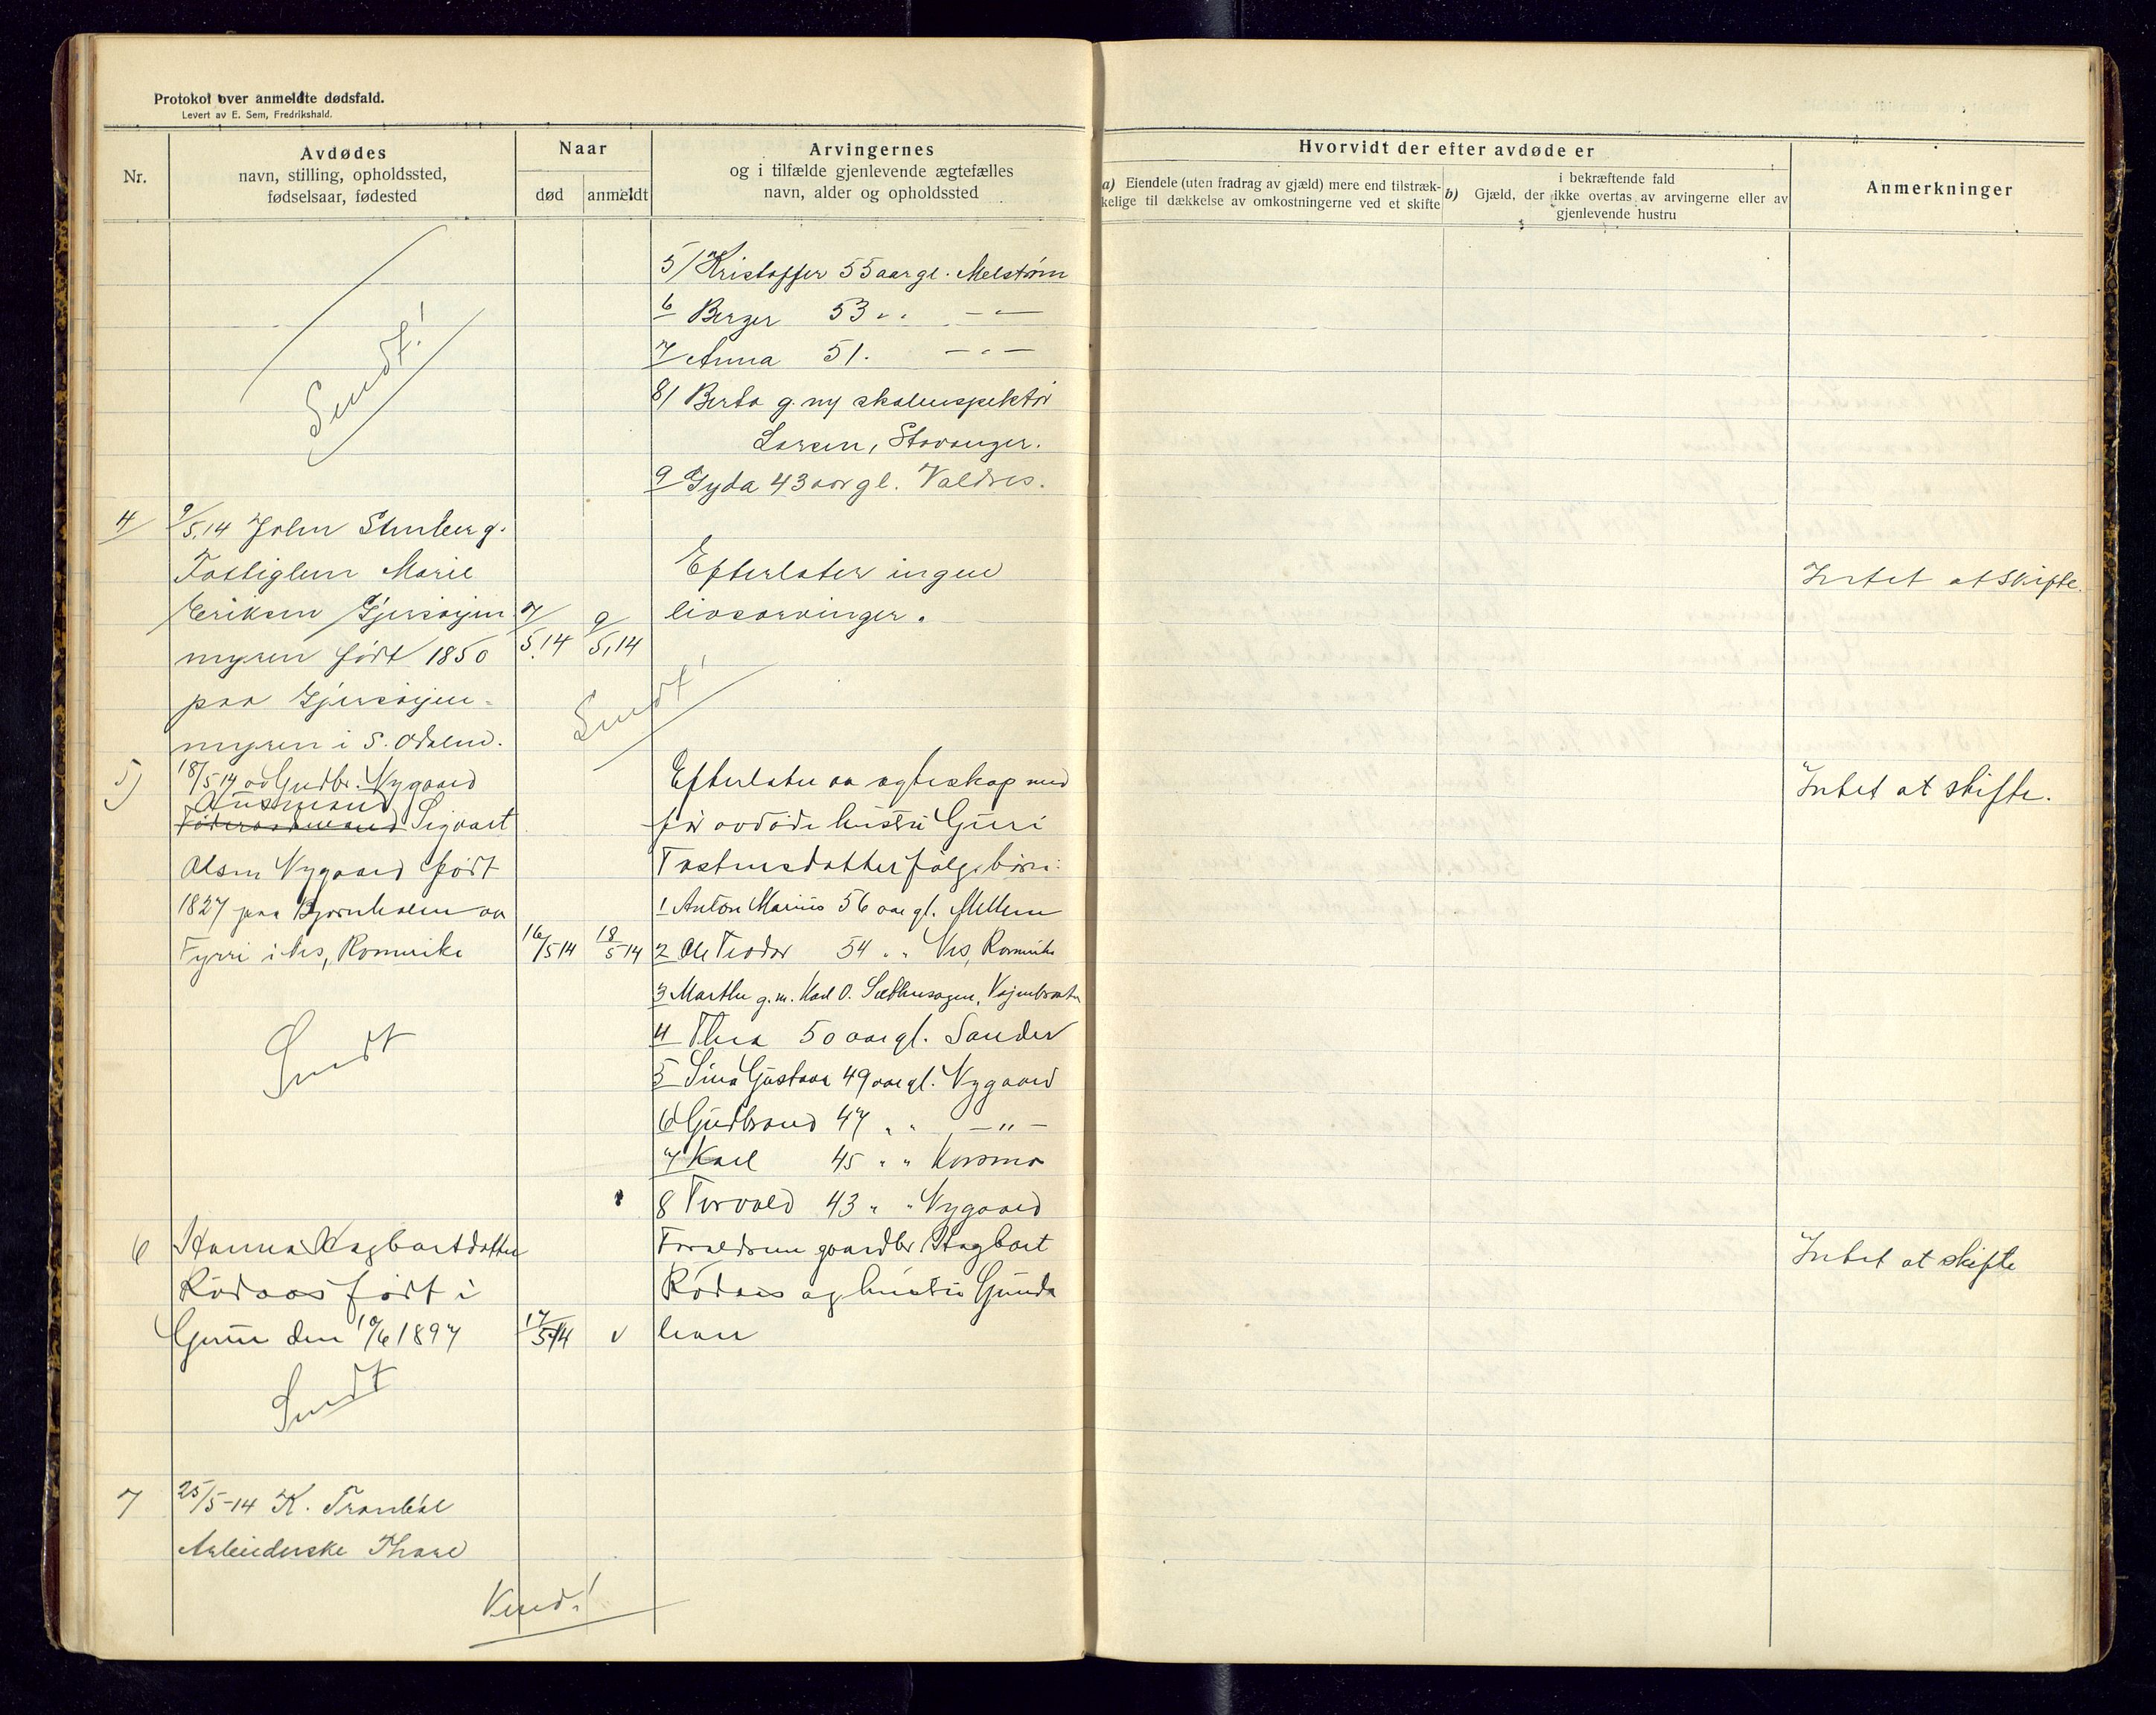 Protokol over anmeldte dødsfald.
Levert av E. Sem, Fredrikshald.
Nr.
Avdødes
navn, stilling, opholdssted,
fødselsaar, fødested
Naar
død
anmeldt
Arvingernes
og i tilfælde gjenlevende ægtefælles
navn, alder og opholdssted
Hvorvidt der efter avdøde er
a) Eiendele (uten fradrag av gjæld) mere end tilstræk-
kelige til dækkelse av omkostningerne ved et skifte
b) i bekræftende fald
Gjæld, der ikke overtas av arvingerne eller av
gjenlevende hustru
Anmerkninger
5/ Kristoffer 55 aar gl. Melstrøm
6 Berger 53 " " — " —
7 Anna 51. — " —
Sendt!
8/ Berta g. m/ skoleinspektør
Larsen, Stavanger.
9 Gyda 43 aar gl. Valdres.
4/ 9/5.14 John Stenberg.
Fattiglem Marie
Eriksen Gjersøyen
myren født 1850
paa Gjersøyen-
myren i S. Odalen.
7/5.14
9/5.14
Efterlater ingen
livsarvinger.
Intet at skifte.
Sendt!
5) 18/5 14 av Gudbr. Nygaard
Husmand
Føderaadsmand Sigvart
Olsen Nygaard født
1827 paa Bjørnholen av
Fyrri i Nes, Romerike
16/5 14
18/5 14
Efterlater av egteskap med
før avdøde hustru Guri
Tostensdatter følg. børn:
1 Anton Marius 56 aar gl. Mellem
2 Ole Teodor 54 " " Nes, Romerike
3 Marthe g. m. Karl O.
4 Thea 50 aar gl. Sander
5 Sina Gustava 49 aar gl. Nygaard
6 Gudbrand 47 " " — " —
7 Karl 45 " " Korsmo
8 Torvald 43 " " Nygaard
Intet at skifte.
Sendt
6 Hanna Hagbartdatter
Rødaas født i
Grue den 10/6 1897
17/5-14
v
Forældrene gaardbr Hagbart
Rødaas og hustru Gunda
lever
Intet at skifte
Sendt
7 25/5-14 K. Tranbøl
Arbeiderske Thore
Vend!